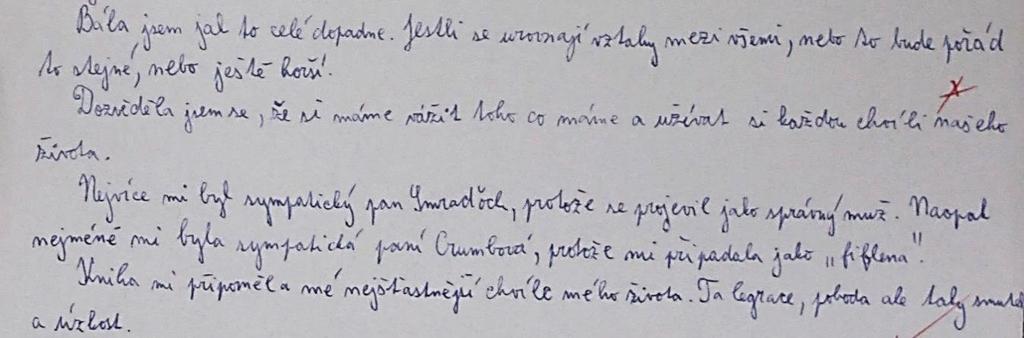 Bála jsem jak to celé dopadne. Jestli se urovnají vztahy mezi všemi, nebo to bude pořád
to stejné, nebo ještě horší.
Dozvěděla jsem se, že si máme vážit toho co máme a užívat si každou chvíli našeho
života.
Nejvíce mi byl sympatický pan Smraďoch, protože se projevil jako správný muž. Naopak
nejméně mi byla sympatická paní Crumbová, protože mi připadala jako „fiflena".
Kniha mi připoměla mé nejšťastnější chvíle mého života. Ta legrace, pohoda ale taky smutek
a úzkost.